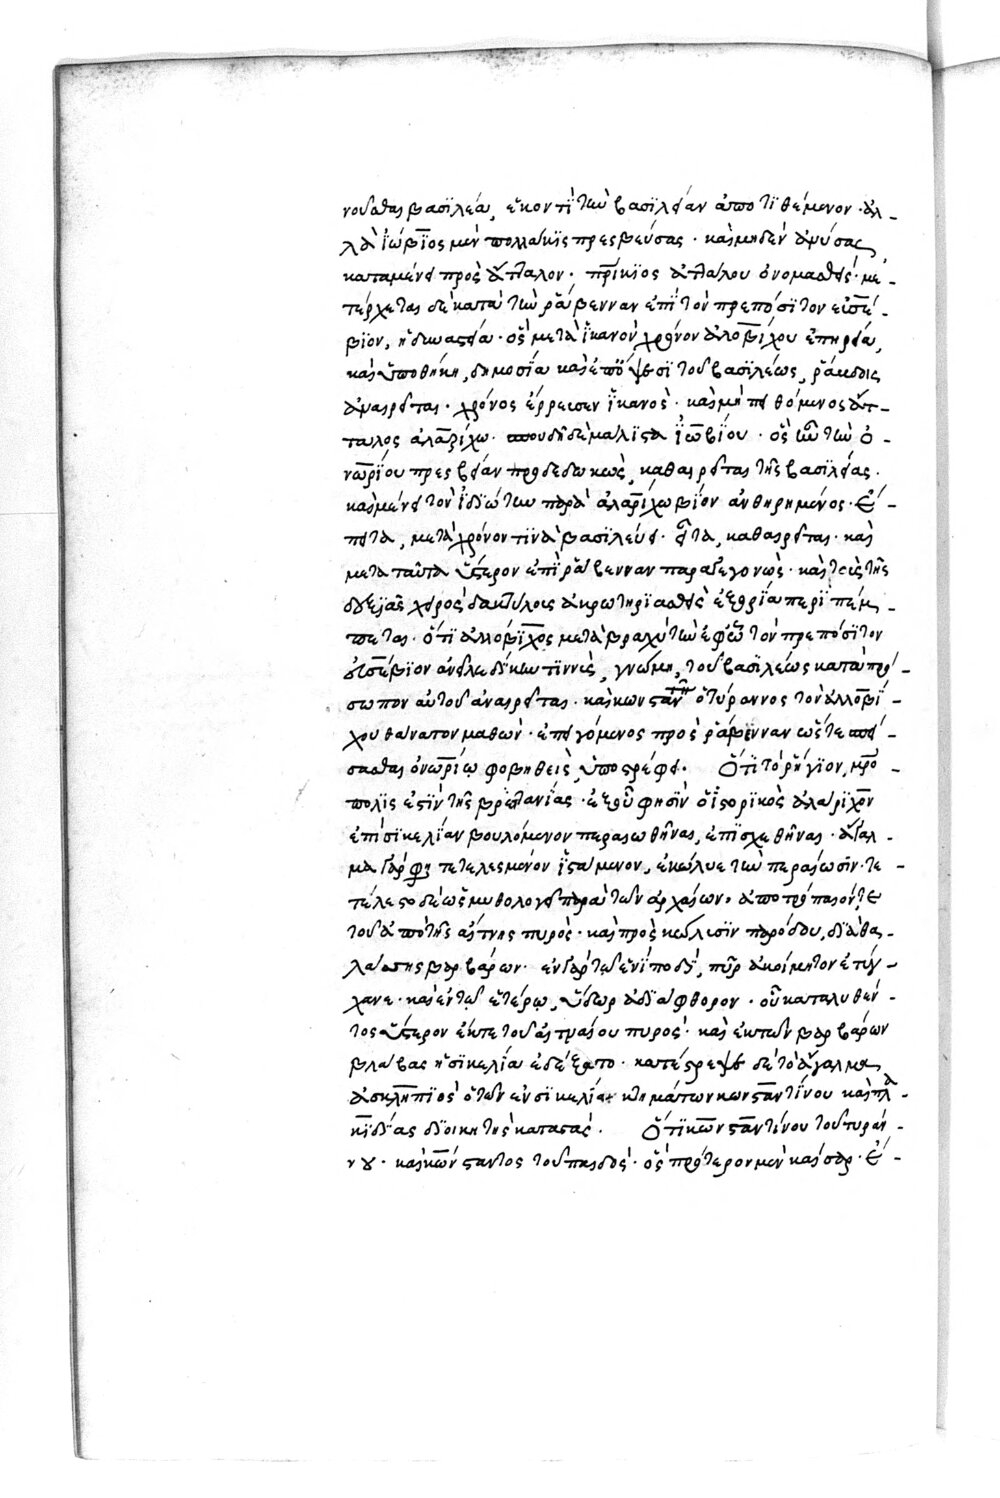 νοῦσθαι βασιλέα, ἑκοντὶ τὴν βασιλείαν ἀποτιθέμενον· ἀλ-
λὰ ἰώβιος μὲν πολλάκις πρεσβεύσας· καὶ μηδὲν ἀνύσας,
καταμένει πρὸς ἄτταλον· πατρίκιος ἀττάλου ὀνομασθείς· με-
τέρχεται δὲ κατὰ τὴν ῥάβενναν ἐπὶ τὸν πρεπόσιτον εὐσέ-
βιον, ἡ δυναστεία· ὃς μετὰ ἱκανὸν χρόνον ἀλοβίχου ἐπηρεία,
καὶ ὑποθήκη, δημοσία καὶ ἐπόψεσι τοῦ βασιλέως, ῥάβδοις
ἀναιρεῖται· χρόνος ἔρρευσεν ἱκανός· καὶ μὴ πειθόμενος ἄτ-
ταλος ἀλαρίχω· σπουδῆ δὲ μάλιστα ἰωβίου· ὃς ἦν τὴν ὁ-
νωρίου πρεσβείαν προδεδωκώς, καθαιρεῖται τῆς βασιλείας·
καὶ μένει τὸν ἰδιώτην παρὰ ἀλαρίχω βίον ἀνθηρημένος· ἔ-
πειτα, μετὰ χρόνον τινὰ βασιλεύει· εἶτα, καθαιρεῖται· καὶ
μετὰ ταῦτα ὕστερον ἐπὶ ῥάβενναν παραγεγονώς· καὶ τοὺς τῆς
δεξιᾶς χειρὸς δακτύλους ἀκρωτηριασθεὶς ἐξορία περιπέμ-
πεται· ὅτι ἀλλόβιχος μετὰ βραχὺ τὴν ἐφ' ὧ τὸν πρεπόσιτον
εὐσέβιον ἀνεῖλε δίκην τιννύς, γνώμη, τοῦ βασιλέως κατὰ πρό-
σωπον αὐτοῦ ἀναιρεῖται· καὶ κωνσταντῖν ὁ τύραννος τὸν ἀλλοβί-
χου θάνατον μαθών· ἐπειγόμενος πρὸς ῥάβενναν ὥστε σπεί-
σασθαι ὀνωρίῳ φοβηθεὶς ὑποστρέφει. Ὅτι τὸ ῥήγιον, μητρό-
πολίς ἐστιν τῆς βρεττανίας· ἐξ οὗ φησὶν ὁ ἱστορικὸς ἀλάριχον
ἐπὶ σικελίαν βουλόμενον περαιωθῆναι, ἐπισχεθῆναι· ἄγαλ-
μα γάρ φησι τετελεσμένον ἱστάμενον, ἐκώλυε τὴν περαίωσιν· τε-
τέλεστο δὲ ὡς μυθολογεῖ παρὰ τῶν ἀρχαίων· ἀποτρόπαιόν τε
τοῦ ἀπὸ τῆς αἴτνης πυρός· καὶ πρὸς κώλυσιν παρόδου, διὰ θα-
λάσσης βαρβάρων· ἐν γὰρ τῷ ἑνὶ ποδὶ, πῦρ ἀκοίμητον ἐτύγ-
χανε· καὶ ἐν τῷ ἑτέρῳ, ὕδωρ ἀδιάφθορον· οὗ καταλυθέν-
τος ὕστερον ἔκ τε τοῦ αἰτναίου πυρός· καὶ ἐκ τῶν βαρβάρων
βλάβας ἡ σικελία ἐδέξατο· κατέστρεψε δὲ τὸ ἄγαλμα
ἀσκληπιὸς ὁ τῶν ἐν σικελία κτημάτων κωνσταντίνου καὶ πλα-
κιδίας διοικητὴς καταστάς. Ὅτι κωνσταντίνου τοῦ τυράν-
νου· καὶ κώνσταντος τοῦ παιδός· ὃς πρότερον μὲν καῖσαρ· ἔ-